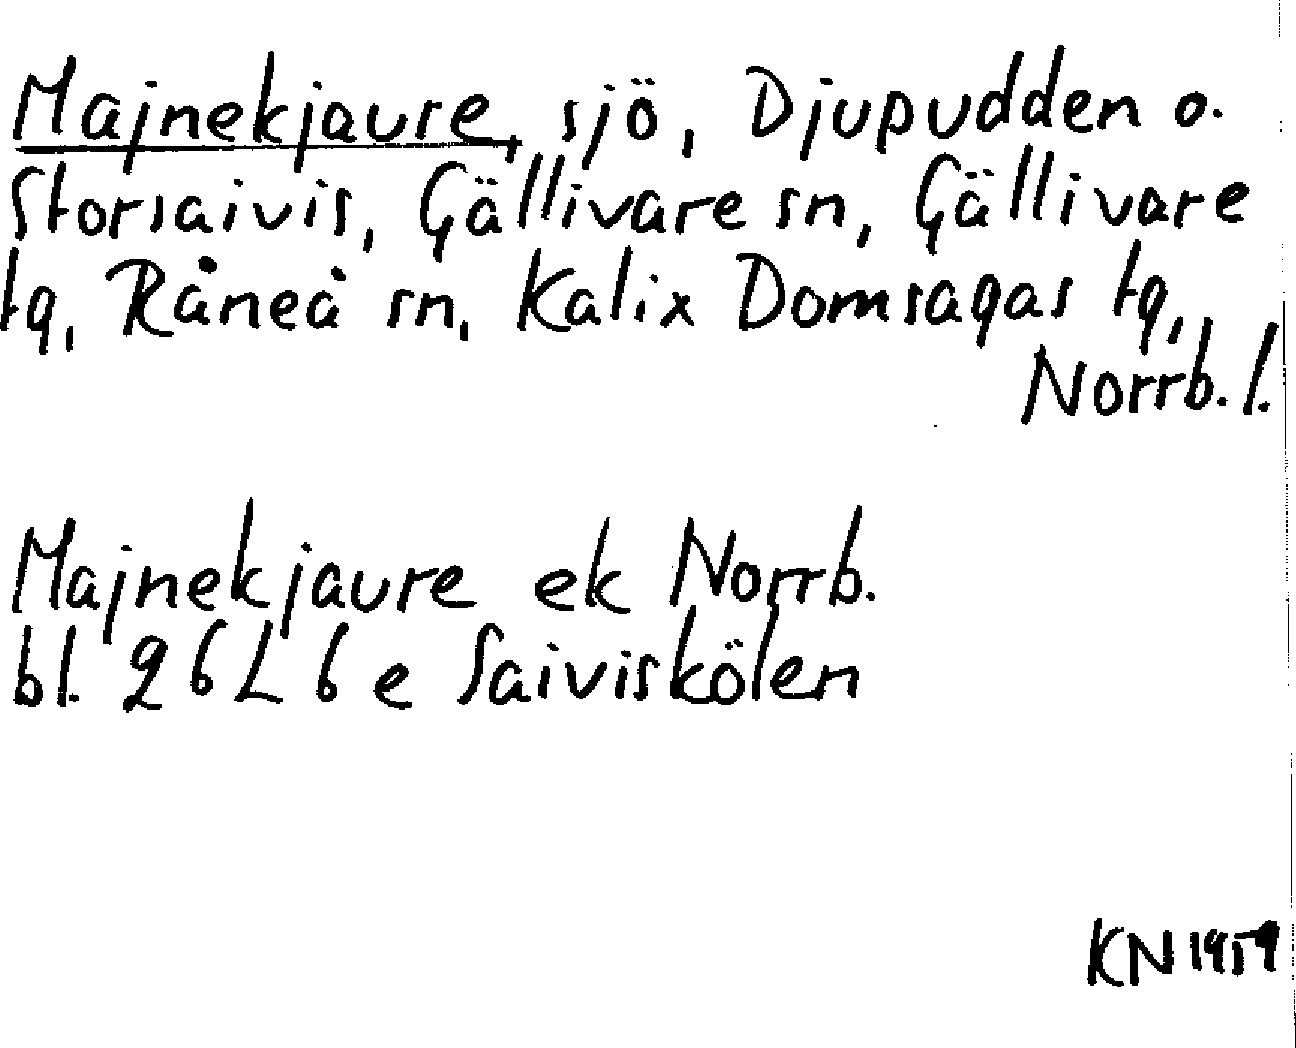 Majnekjaure, sjö, Djupudden o.
Storsaivis, Gällivare sn, Gällivare
tg, Råneå sn, Kalix Domsagas tg,
Norrb. l.
Majnekjaure ek Norrb.
bl. 26L 6e Saiviskölen
KN 1959